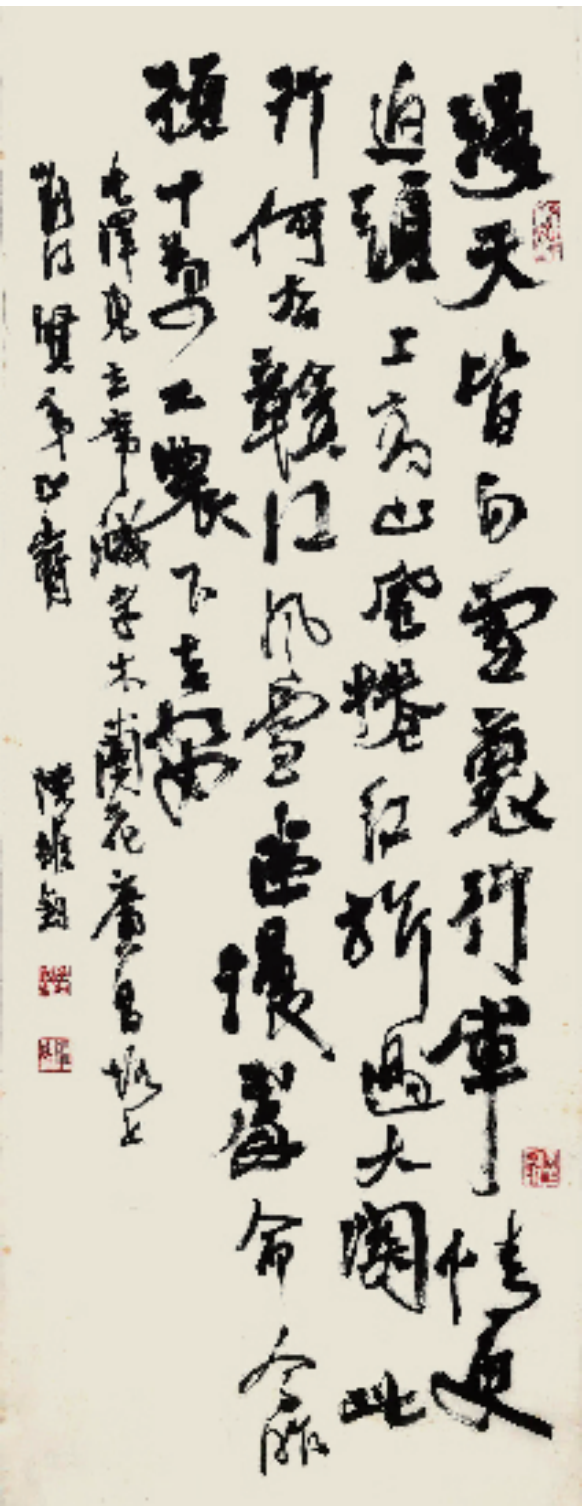 漫天皆白雪裏行軍情更
迫頭上高山風捲紅旂過大關此
行何去贛江風雪迷漫處命令昨
頒十萬工農下吉安
毛澤東主席減字木蘭花廣昌路上
江賢弟 陳雄